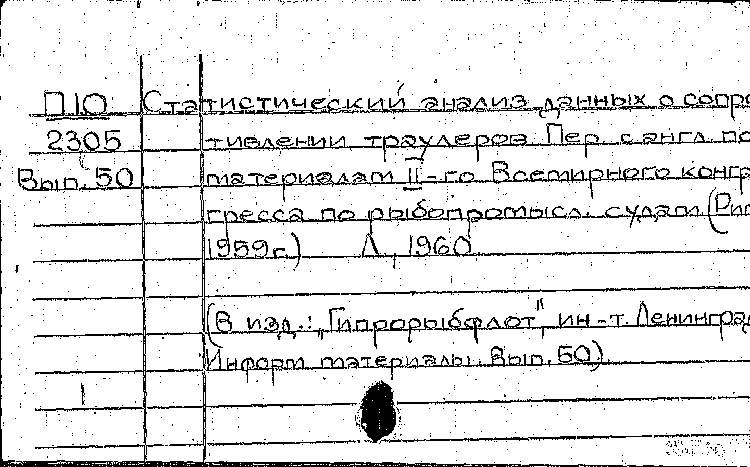 П10 Статистический анализ данных о сопро
2305 тивлении траулеров. Пер. с англ. по
Вып. 50 материалам II-го Всемирного конгр
гресса по рыбопромысл. судам (Рим
1959г.) Л., 1960
(В изд.: „Гипрорыбфлот", ин-т. Ленинград
Информ. материалы. Вып. 50)